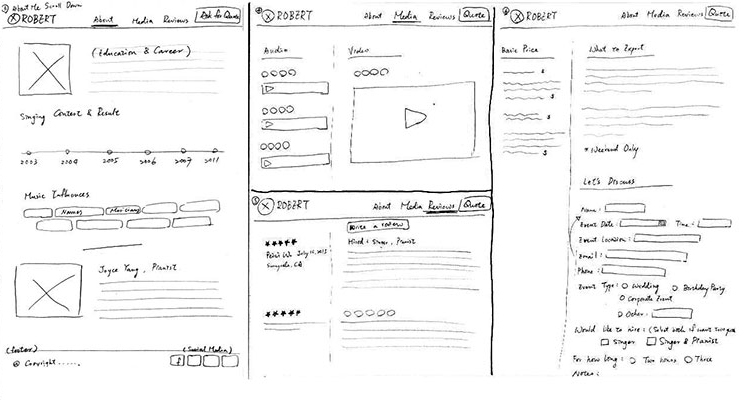 ① About Me Scroll Down
ROBERT About Media Reviews Ask for Quote
(Education & Career)
Singing Contest & Result
2003 2004 2005 2006 2007 2011
Music Influences
Names
Joyce Yang, Pianist
(footer) (Social Media)
@ Copyright ......
f
ROBERT About Media Reviews Quote
Audio Video
ROBERT About Media Reviews Quote
Write a review
July 16, 2015
Sunnyvale, CA
Hired: Singer, Pianist
ROBERT About Media Reviews Quote
Basic Price What to Expect
$
$
$
$
* Weekend Only
Let's Discuss
Name:
Event Date: Time:
Event Location:
Email:
Phone:
Event Type: Wedding Birthday Party
Corporate Event
Other:
Would like to hire: (Select both if want
Singer Singer & Pianist
For how long: Two hours Three
Notes: